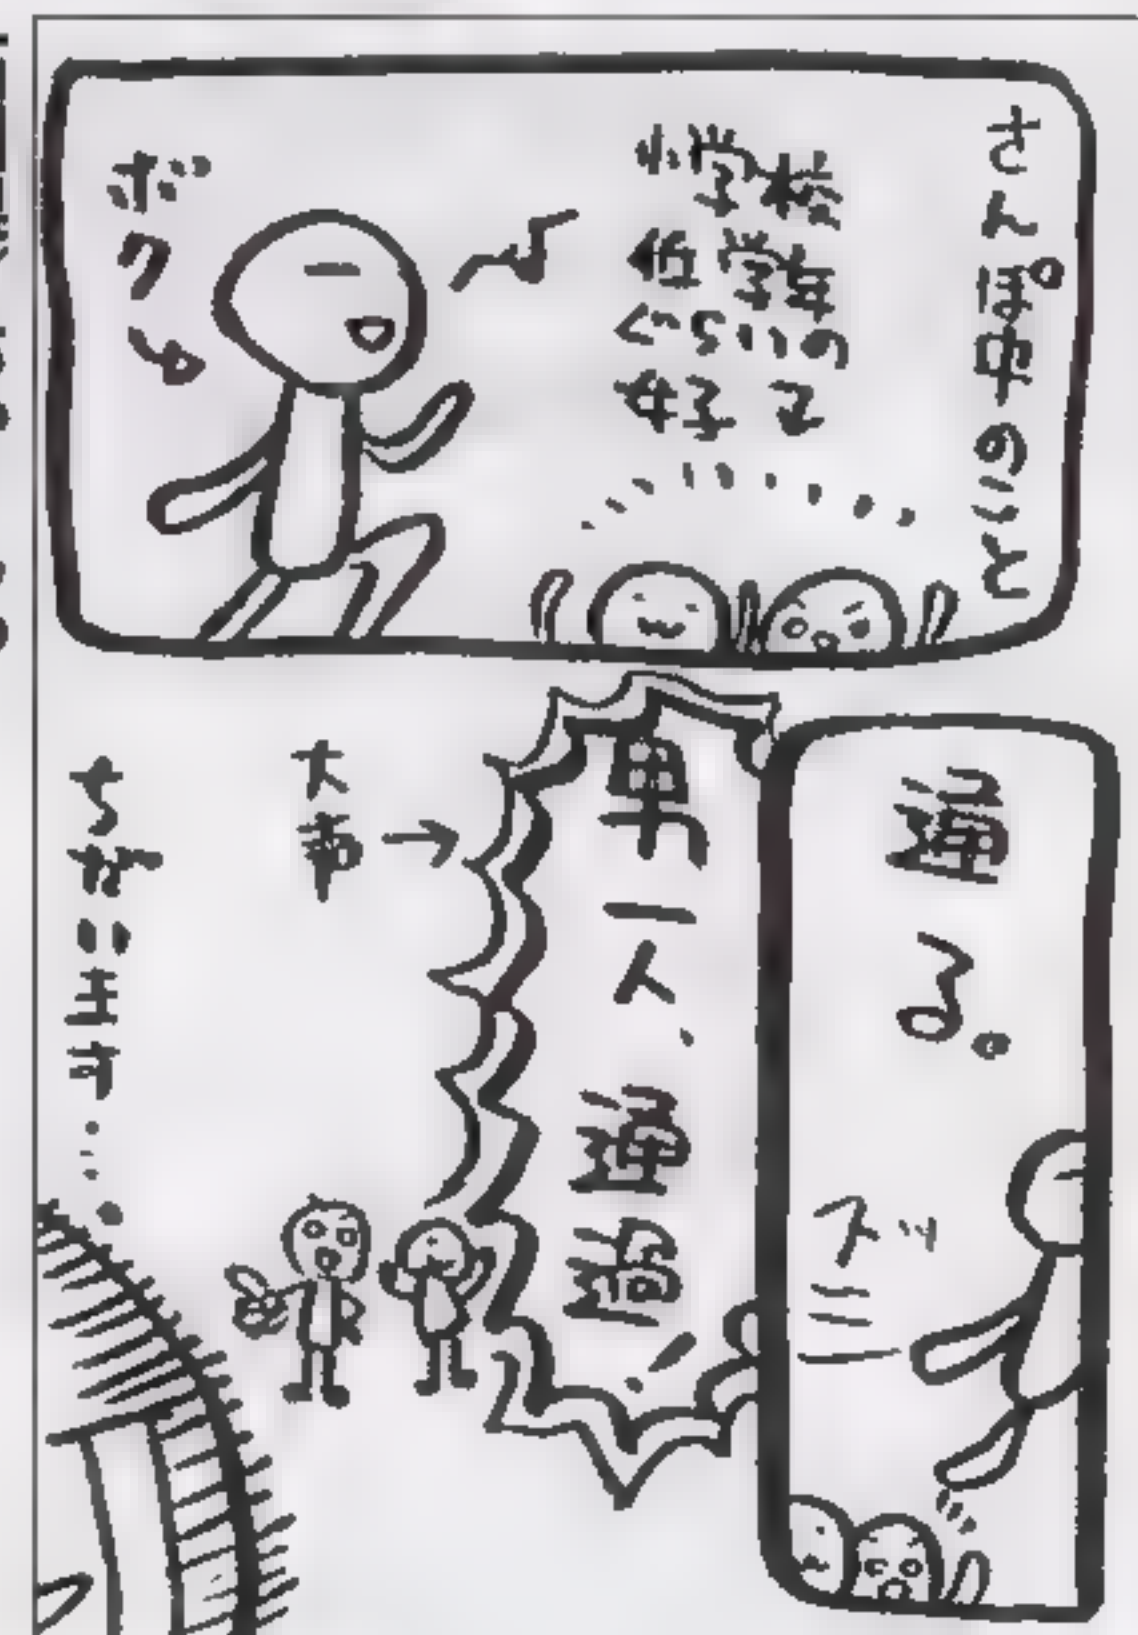 さんぽ中のこと
小学校
低学年
ぐらいの
女子 2
ボク
通る。
スッ
男一人、通過!
大声→
ちがいます…。